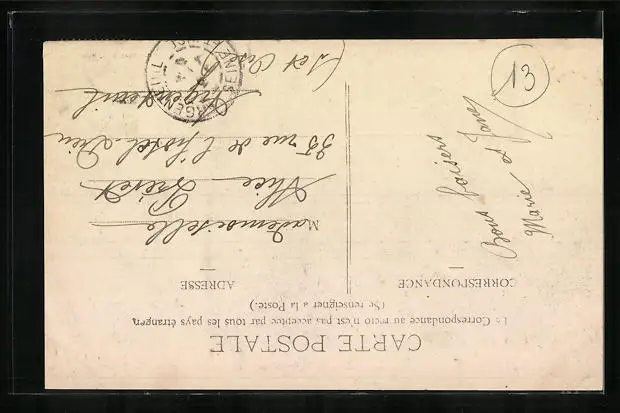 CARTE POSTALE
La Correspondance au recto n'est pas acceptée par tous les pays étrangers
(Se renseigner à la Poste.)
CORRESPONDANCE
ADRESSE
Bons baisers
Marie et
Mademoiselle
Alice
35 rue de l'hotel Dieu
Argenteuil
(Set Oise)
ARGENTEUIL
SEINE ET OISE
13